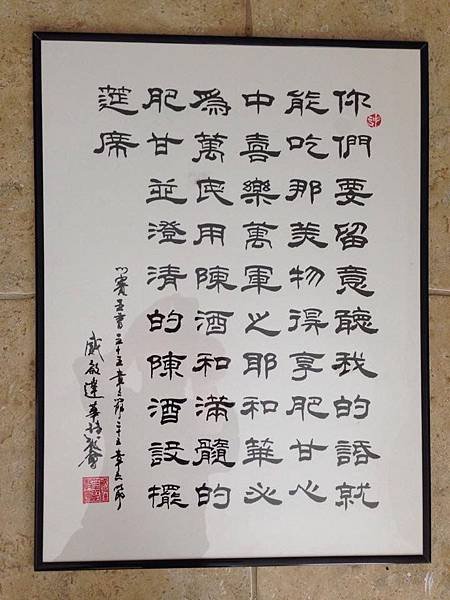 你們要留意聽我的話就
能吃那美物得享肥甘心
中喜樂萬軍之耶和華必
為萬民用陳酒和滿髓的
肥甘並澄清的陳酒設擺
筵席
以賽亞書五十五章二節二十五章六節